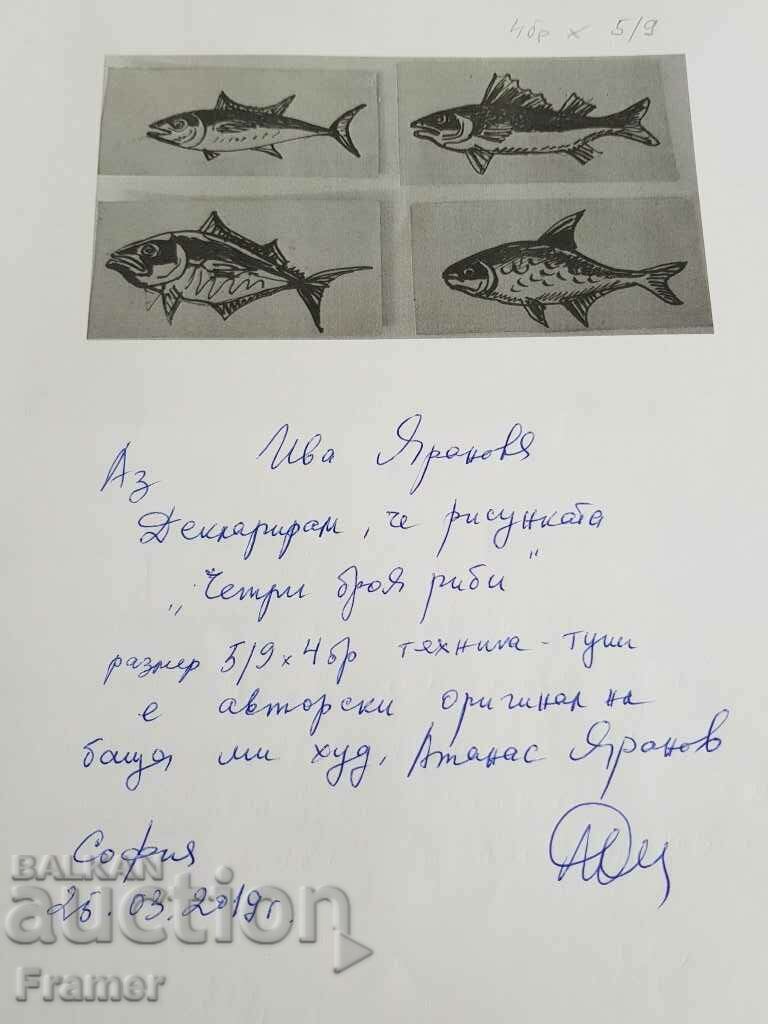 4бр х 5/9
Аз Ива Яранова
Декларирам, че рисунката
„Четри броя риби"
размер 5/9 х 4бр техника - туш
е авторски оригинал на
баща ми худ. Атанас Яранов
София
25.03.2019г.
BALKAN
auction
Framer